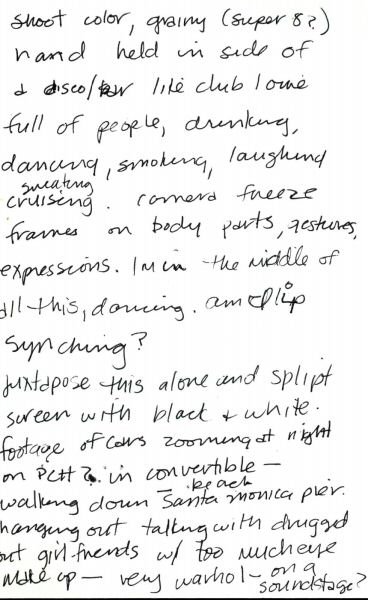 shoot color, grainy (super 8?)
hand held in side of
a disco/bar like club / one
full of people, drinking,
dancing, smoking, laughing
sweating
cruising. camera freeze
frames on body parts, gestures,
expressions. Im in the middle of
all this, dancing. am I lip
synching?
juxtapose this alone and splipt
screen with black & white.
footage of cars zooming at night
on PCH? in convertible —
beach
walking down Santa monica pier.
hanging out talking with drugged
out girlfriends w/ too much eye
make up — very warhol - on a
soundstage?